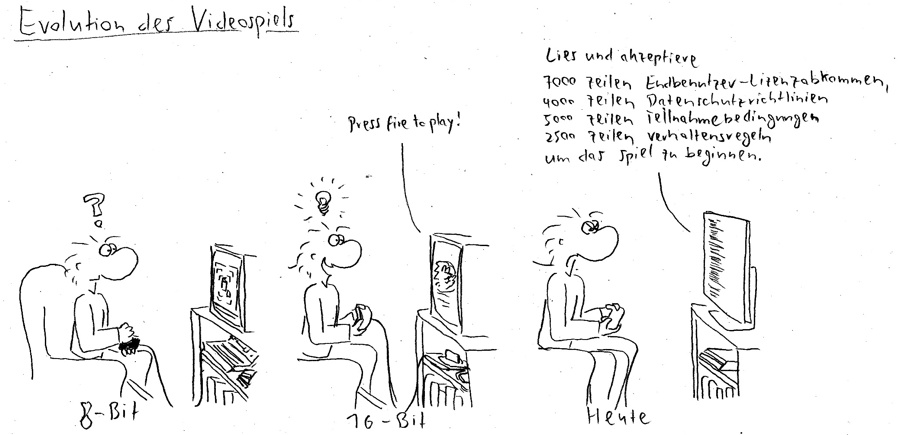 Evolution des Videospiels
?
8-Bit
Press fire to play!
16-Bit
Lies und akzeptiere
7000 Zeilen Endbenutzer-Lizenzabkommen,
4000 Zeilen Datenschutzrichtlinien
5000 Zeilen Teilnahmebedingungen
2500 Zeilen Verhaltensregeln
um das Spiel zu beginnen.
Heute